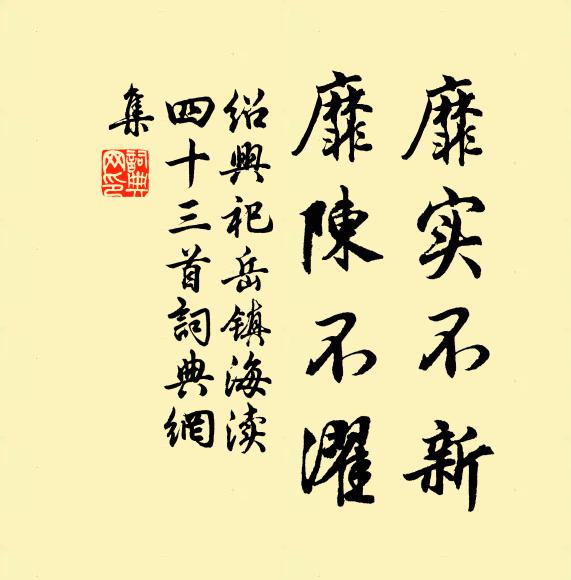 靡实不新
靡陳不濯
绍興祀岳镇海渎
四十三首詞典網
集
詞典
网印